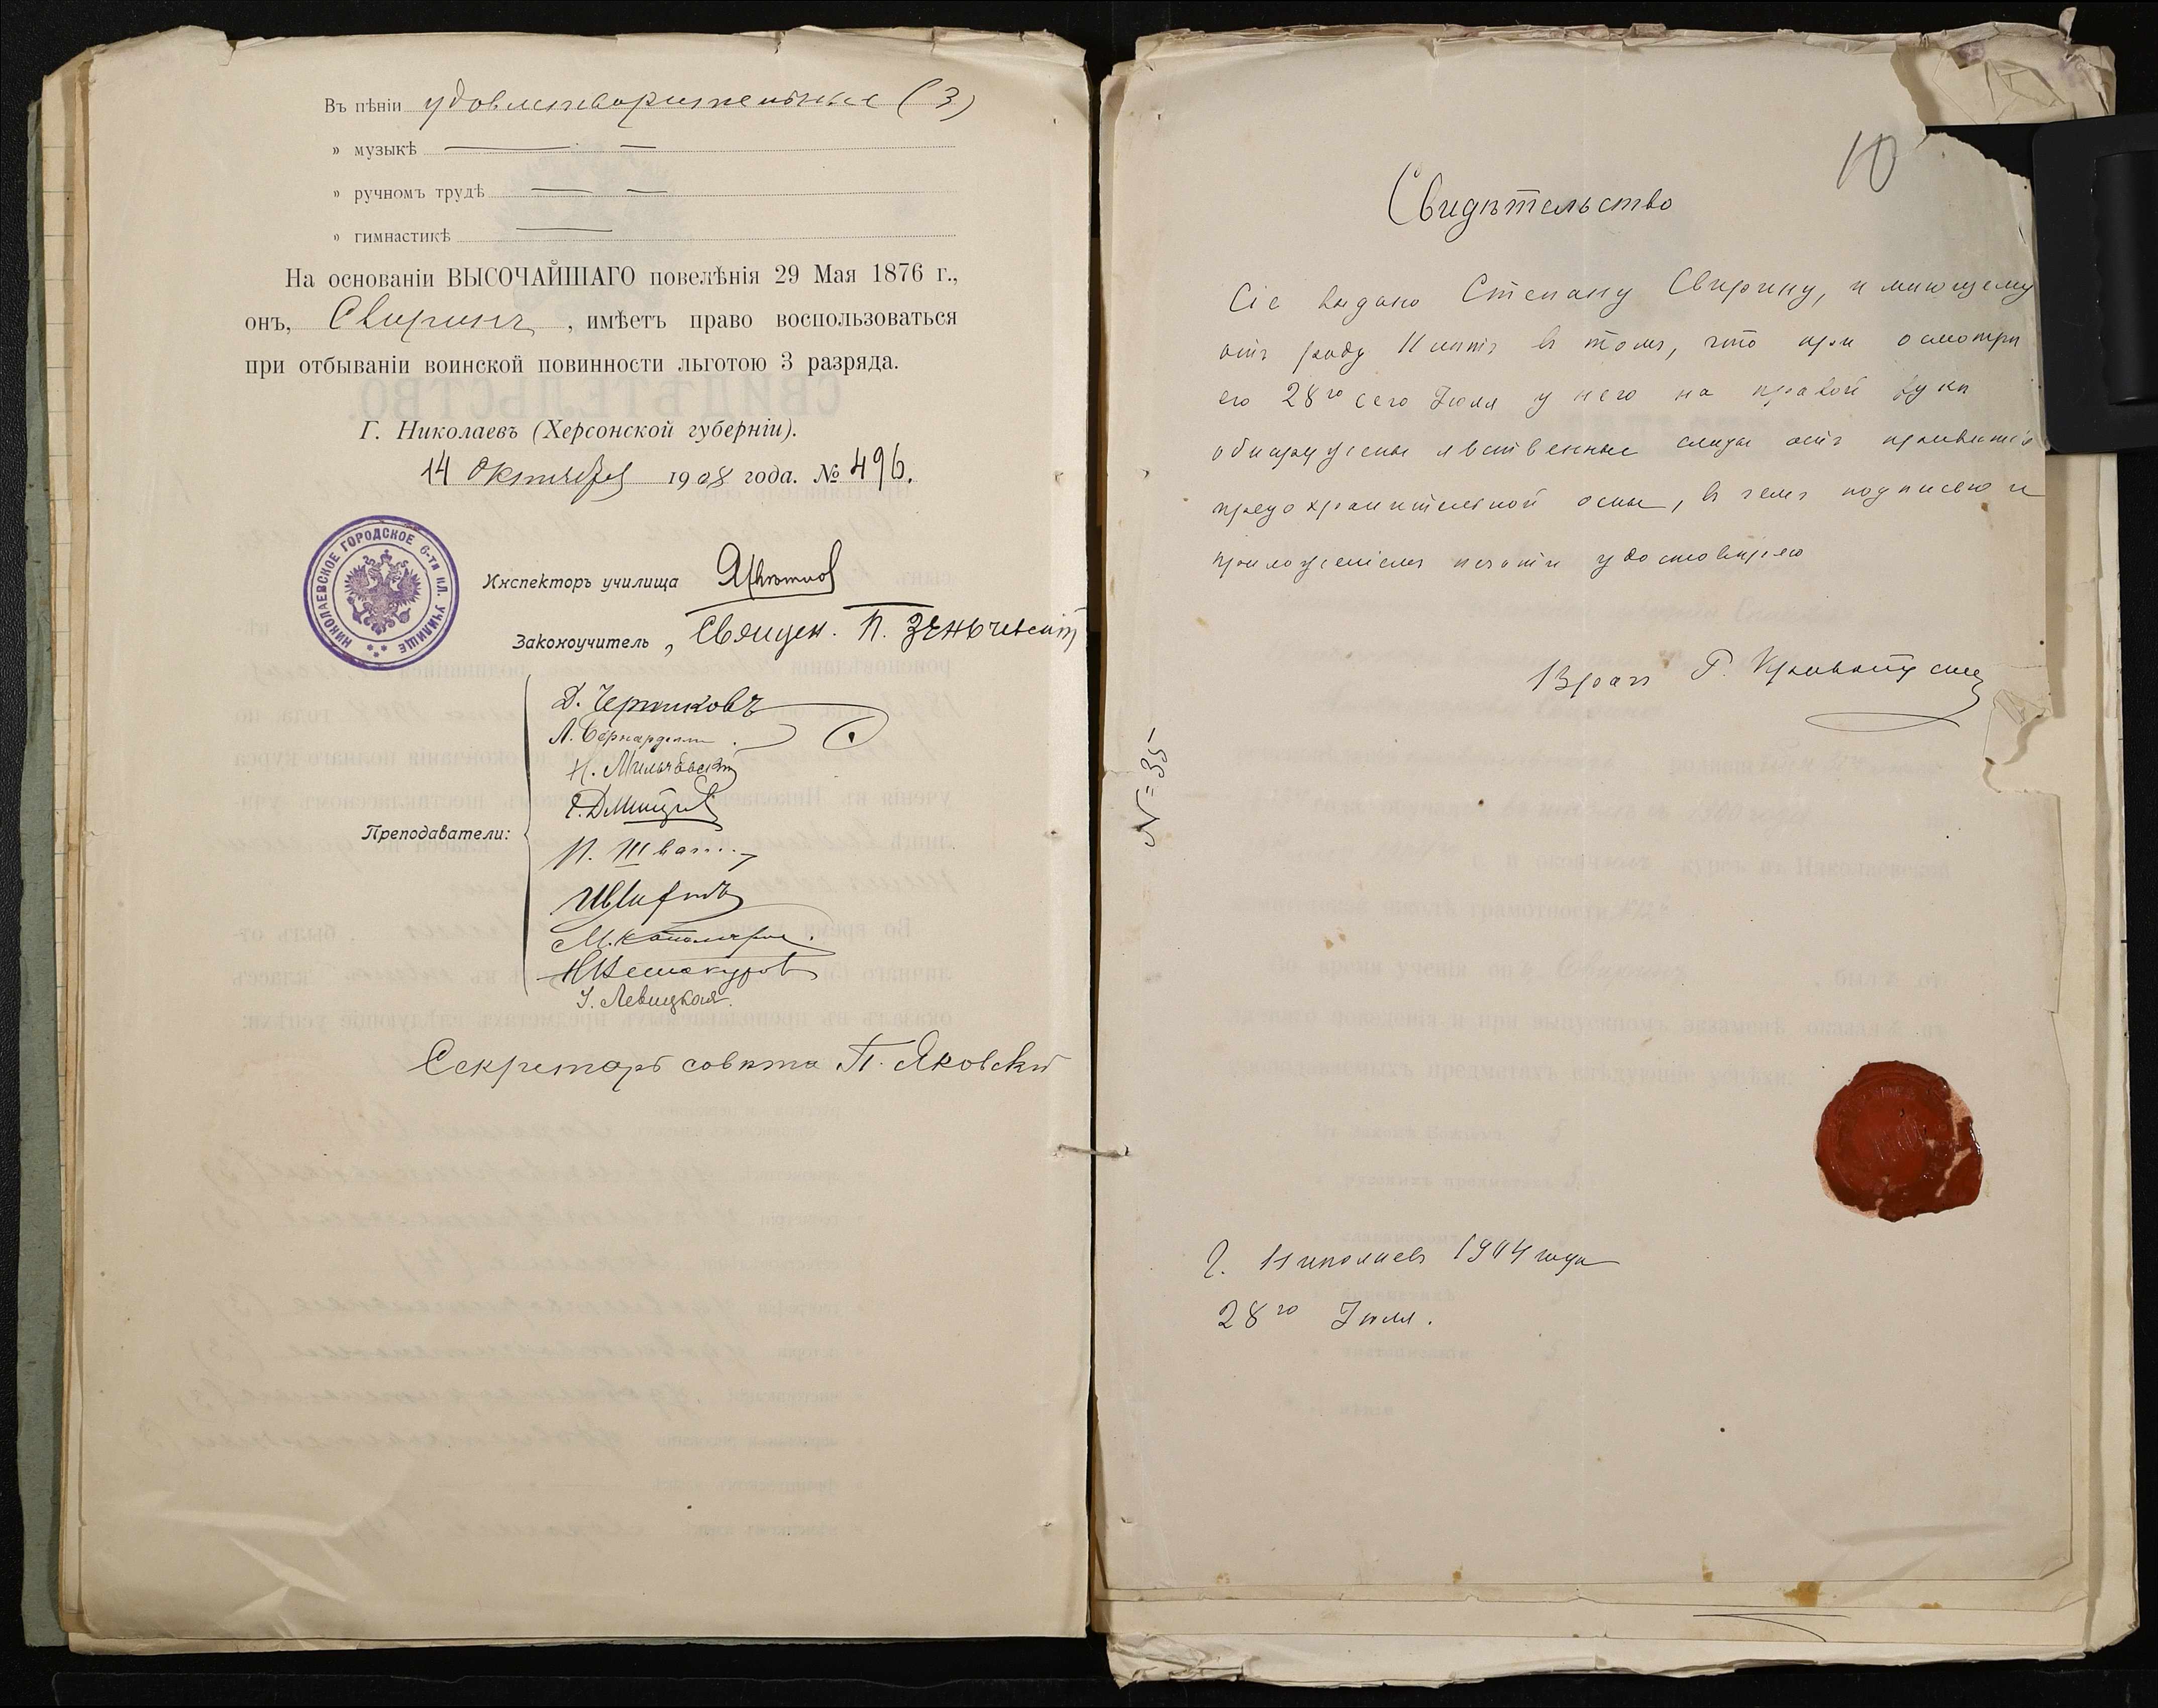 Въ пѣніи удовлетворительные (3)
» музыкѣ — —
» ручномъ трудѣ — —
» гимнастикѣ —
На основаніи ВЫСОЧАЙШАГО повелѣнія 29 Мая 1876 г.,
онъ, Свиринъ, имѣетъ право воспользоваться
при отбываніи воинской повинности льготою 3 разряда.
Г. Николаевъ (Херсонской губерніи).
14 Октября 1908 года. № 496.
НИКОЛАЕВСКОЕ ГОРОДСКОЕ 6-ТИ КЛ. УЧИЛИЩЕ
Инспекторъ училища
Законоучитель, Священ. П.
Преподаватели:
Д. Чертковъ
Л. Бернардели
Н.
Е. Дмитр
П.
М.
Н.
Левицкая.
Секретарь совѣта П. Яковскій
10
Свидѣтельство
Сіе выдано Степану Свирину, имѣющему
отъ роду 11 лѣтъ въ томъ, что при осмотрѣ
его 28го сего Іюля у него на правой рукѣ
обнаружены явственные слѣды отъ привитой
предохранительной оспы, въ чемъ подписью и
приложеніемъ печати удостовѣряю
Врачъ Г.
№ 35
Г. Николаевъ 1904 года
28го Іюля.